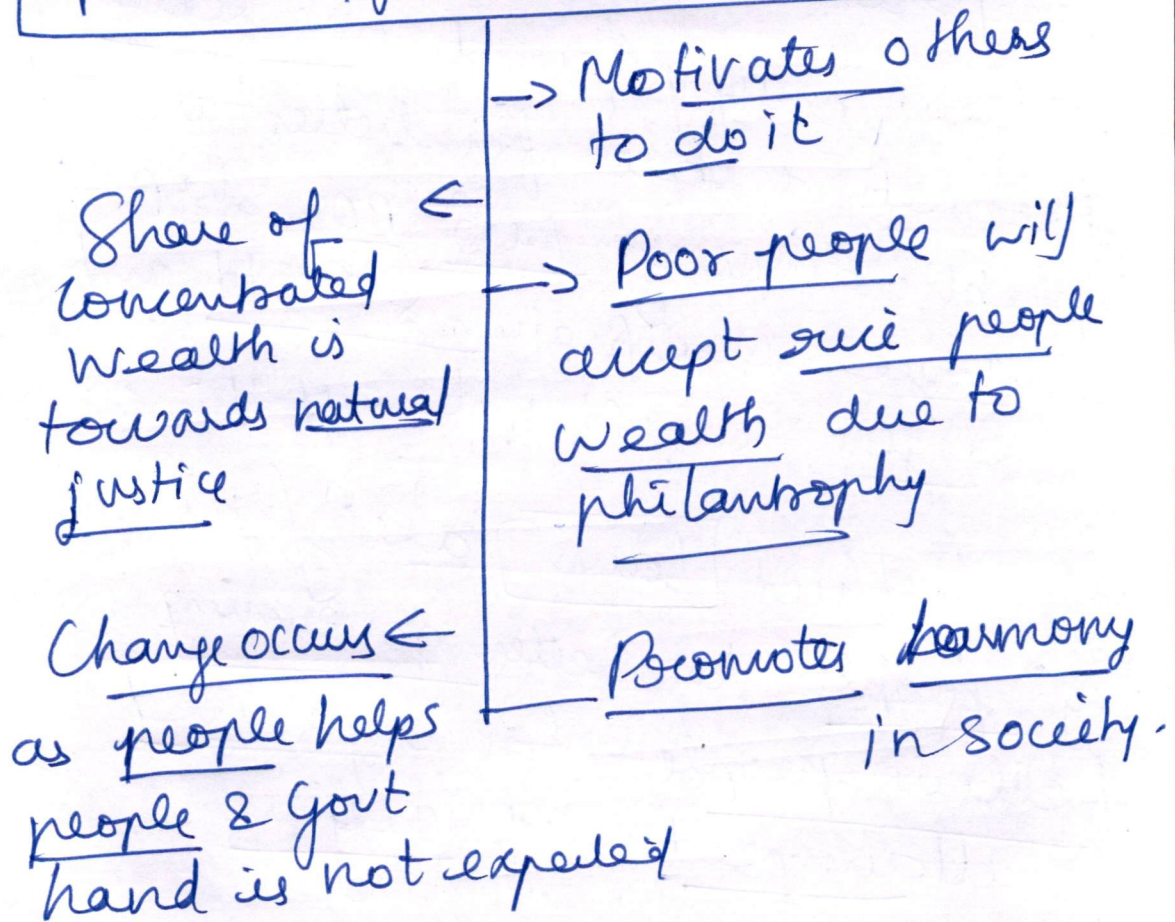 → Motivates others
to do it
← Share of
concentrated
wealth is
towards natural
justice
→ Poor people will
accept rich people
wealth due to
philantrophy
Change occurs ←
as people helps
people & Govt
hand is not expected
Promotes harmony
in society.